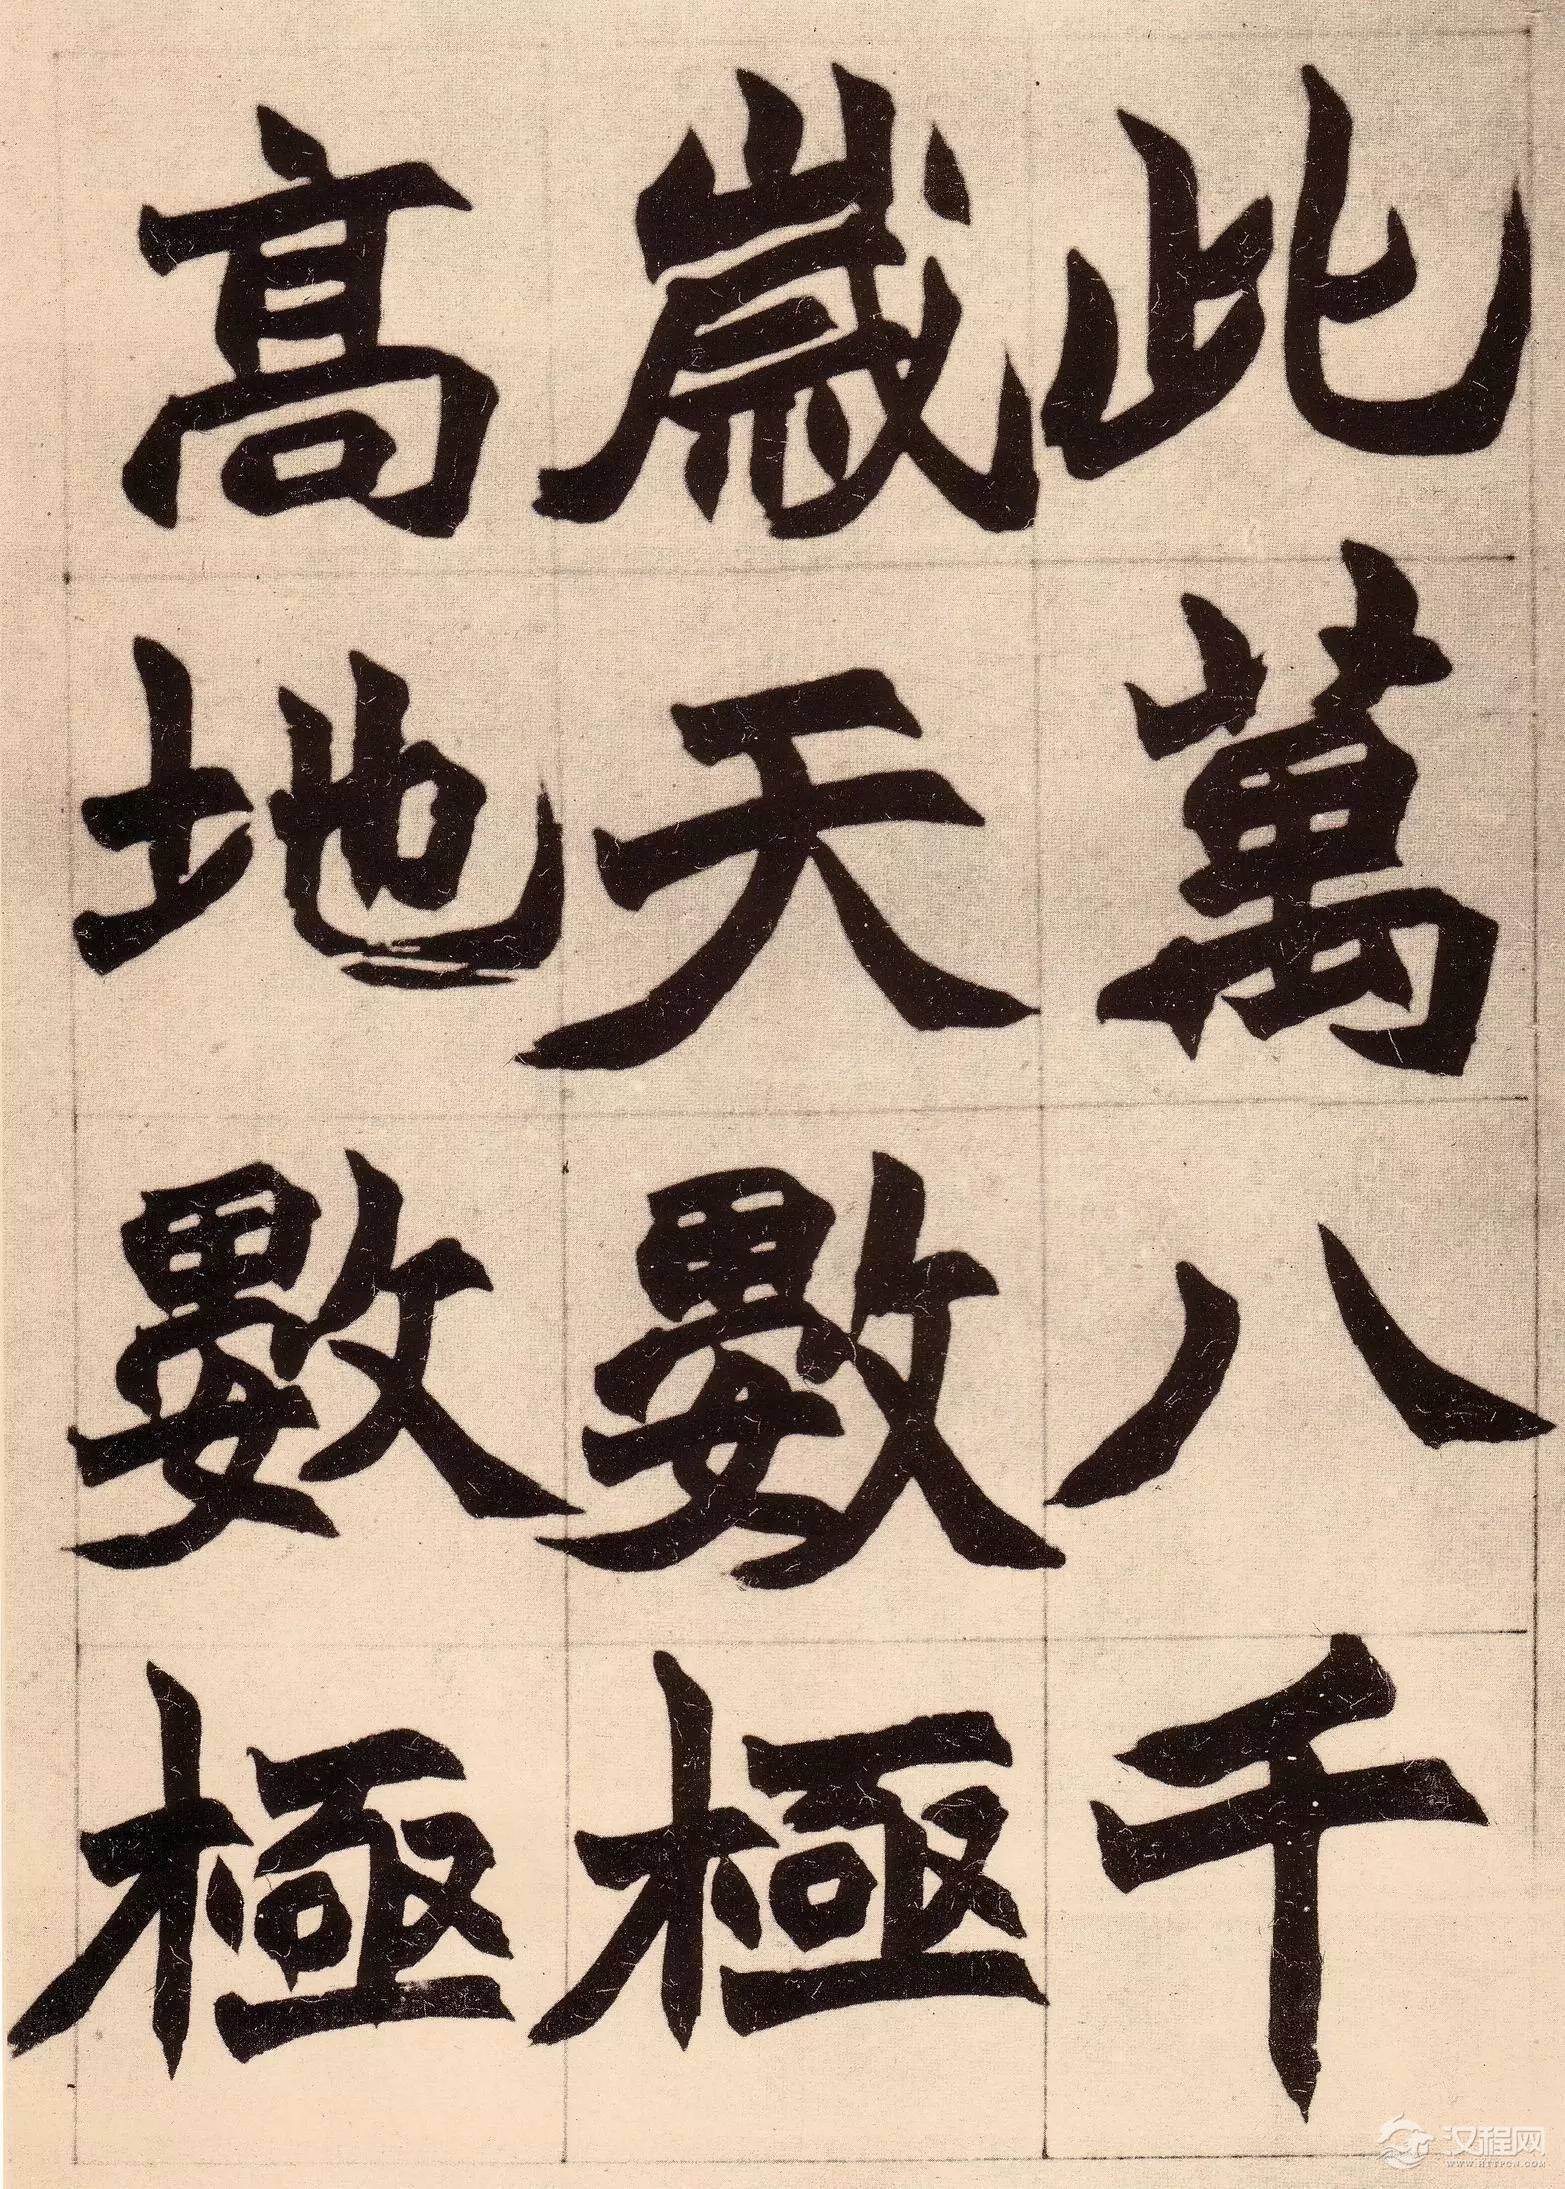 此萬八千
歲天數極
高地數極
汉程网
WWW.HTTPCN.COM